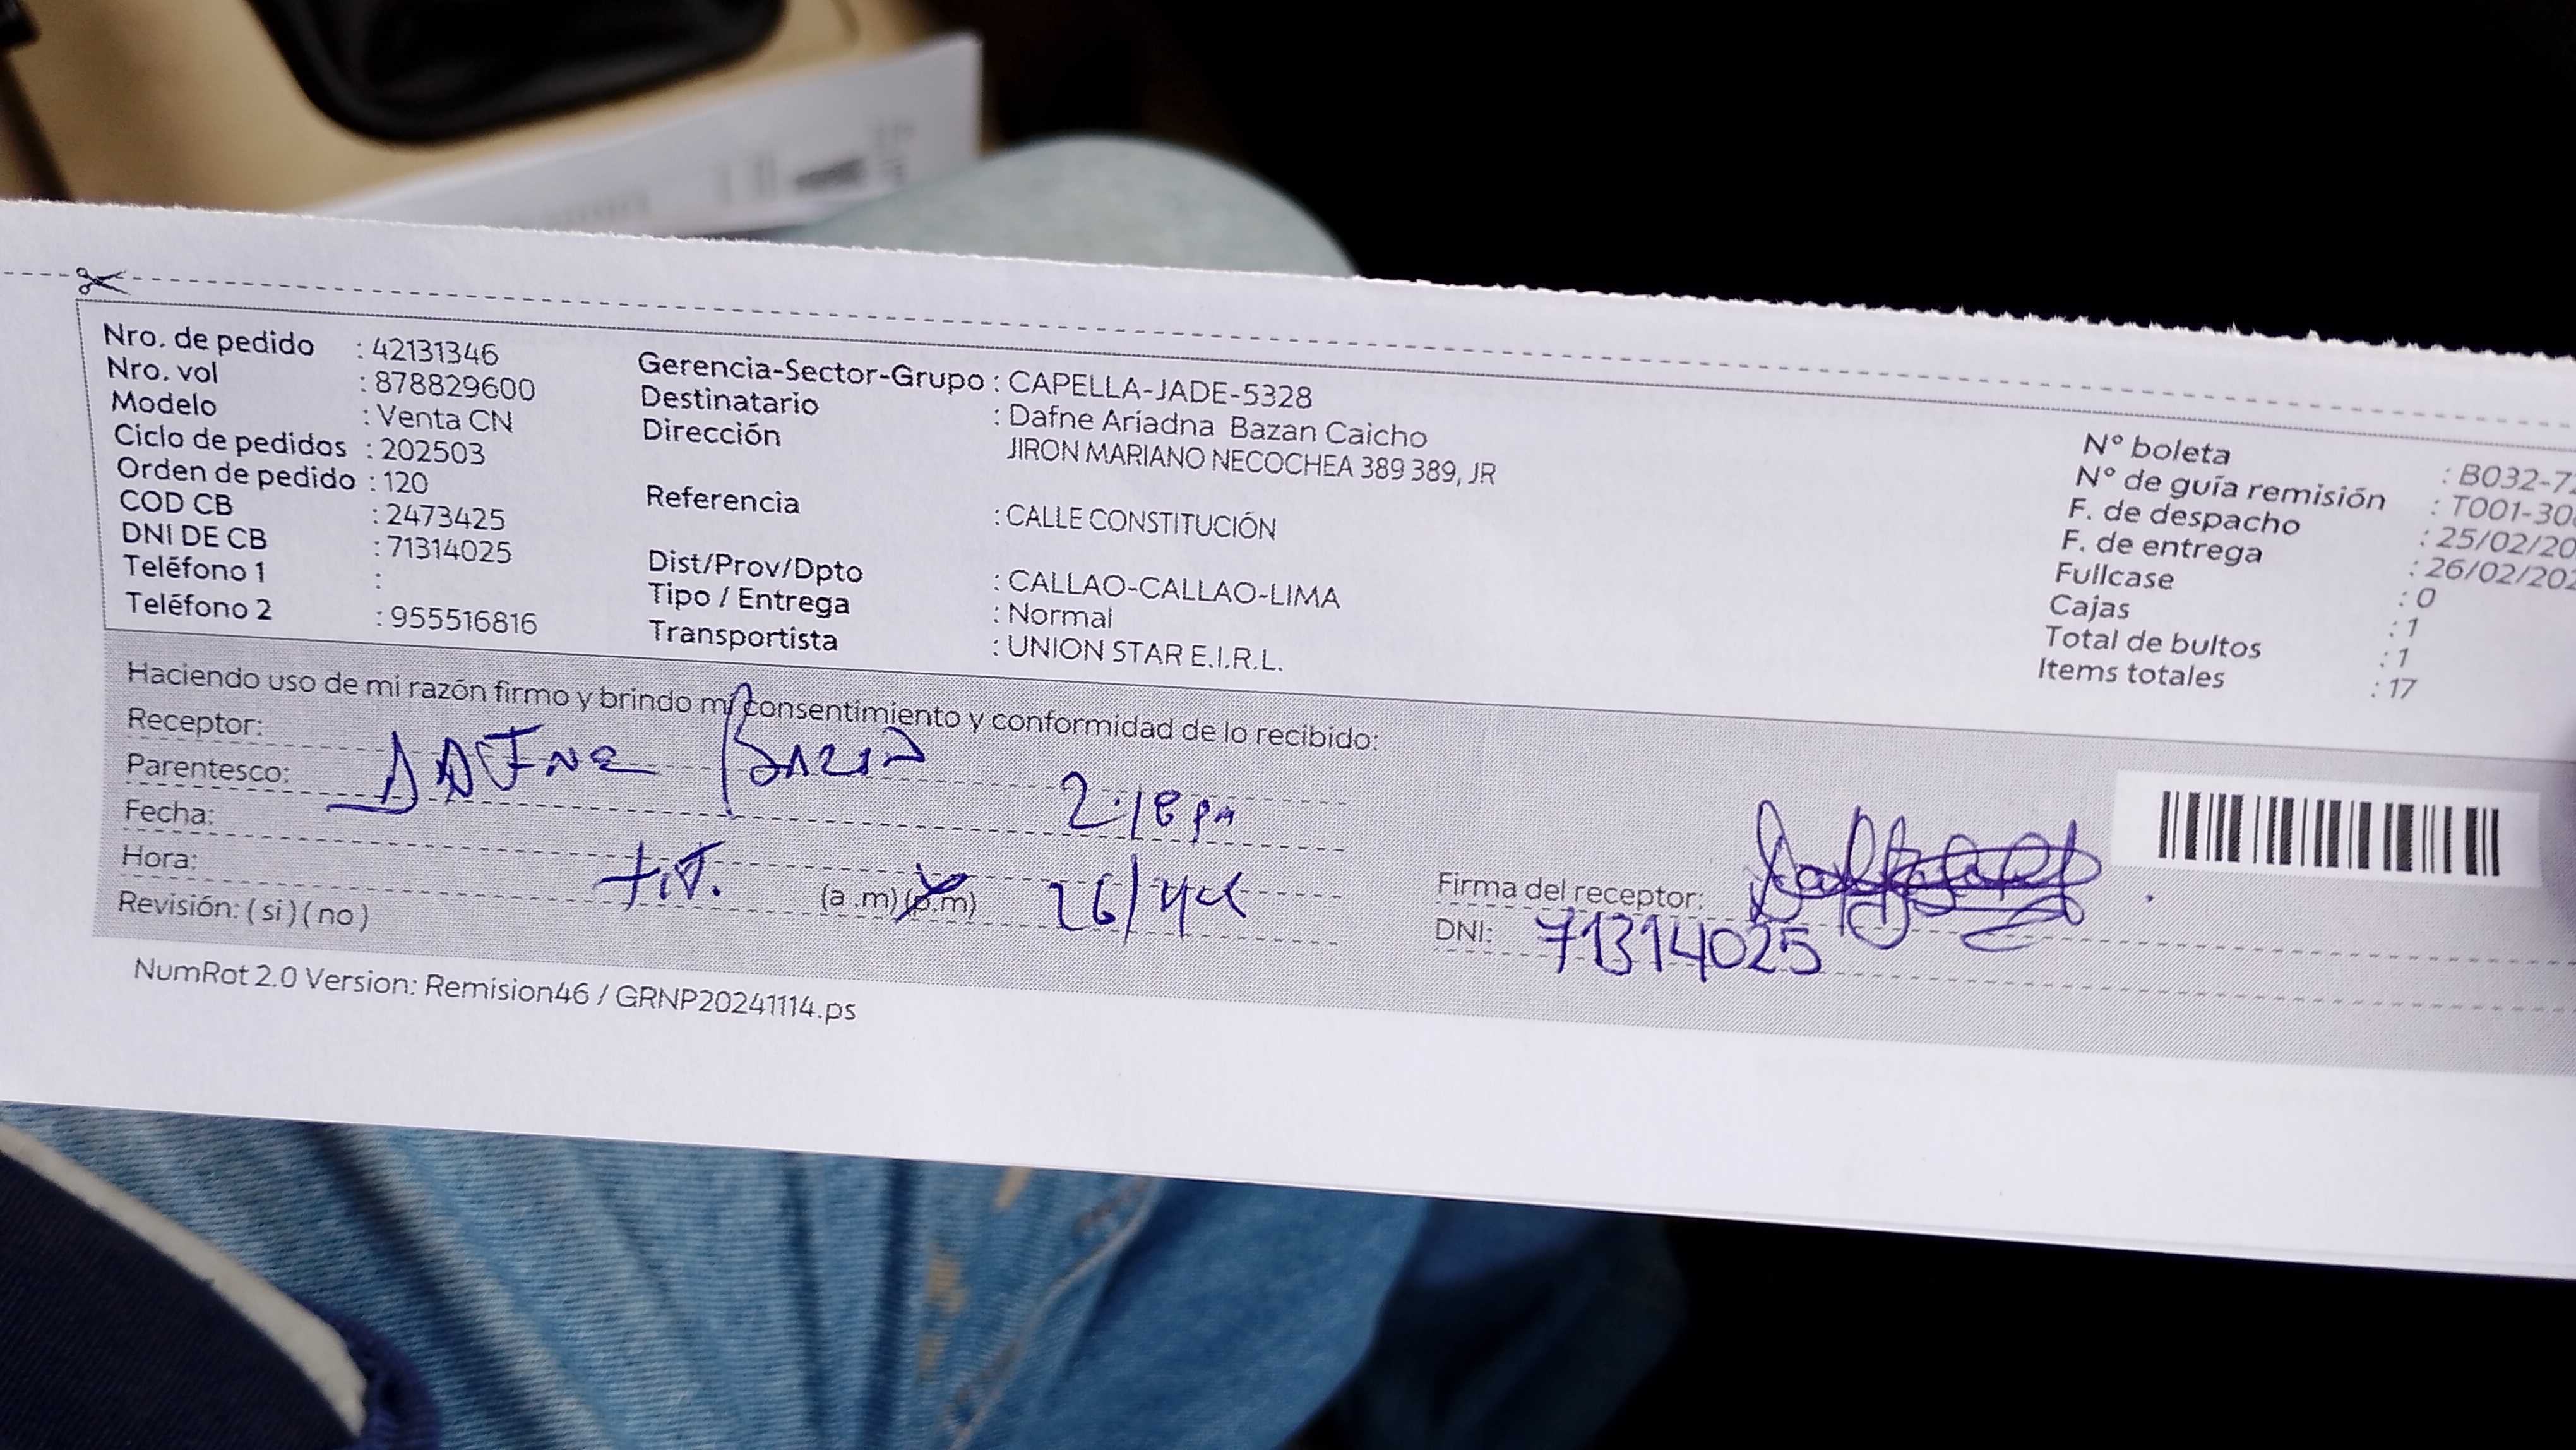 Nro. de pedido : 42131346
Nro. vol : 878829600
Modelo : Venta CN
Ciclo de pedidos : 202503
Orden de pedido : 120
COD CB : 2473425
DNI DE CB : 71314025
Teléfono 1 :
Teléfono 2 : 955516816
Gerencia-Sector-Grupo : CAPELLA-JADE-5328
Destinatario : Dafne Ariadna Bazan Caicho
Dirección JIRON MARIANO NECOCHEA 389 389, JR
Referencia : CALLE CONSTITUCIÓN
Dist/Prov/Dpto : CALLAO-CALLAO-LIMA
Tipo / Entrega : Normal
Transportista : UNION STAR E.I.R.L.
N° boleta : B032-72
N° de guía remisión : T001-30
F. de despacho : 25/02/20
F. de entrega : 26/02/202
Fullcase : 0
Cajas : 1
Total de bultos : 1
Items totales : 17
Haciendo uso de mi razón firmo y brindo mi consentimiento y conformidad de lo recibido:
Receptor:
DAFNE Bazan
Parentesco:
2:18 pm
Fecha:
Hora:
(a .m) (p.m) 26/
Revisión: ( si ) ( no )
Firma del receptor:
DNI: 71314025
NumRot 2.0 Version: Remision46 / GRNP20241114.ps